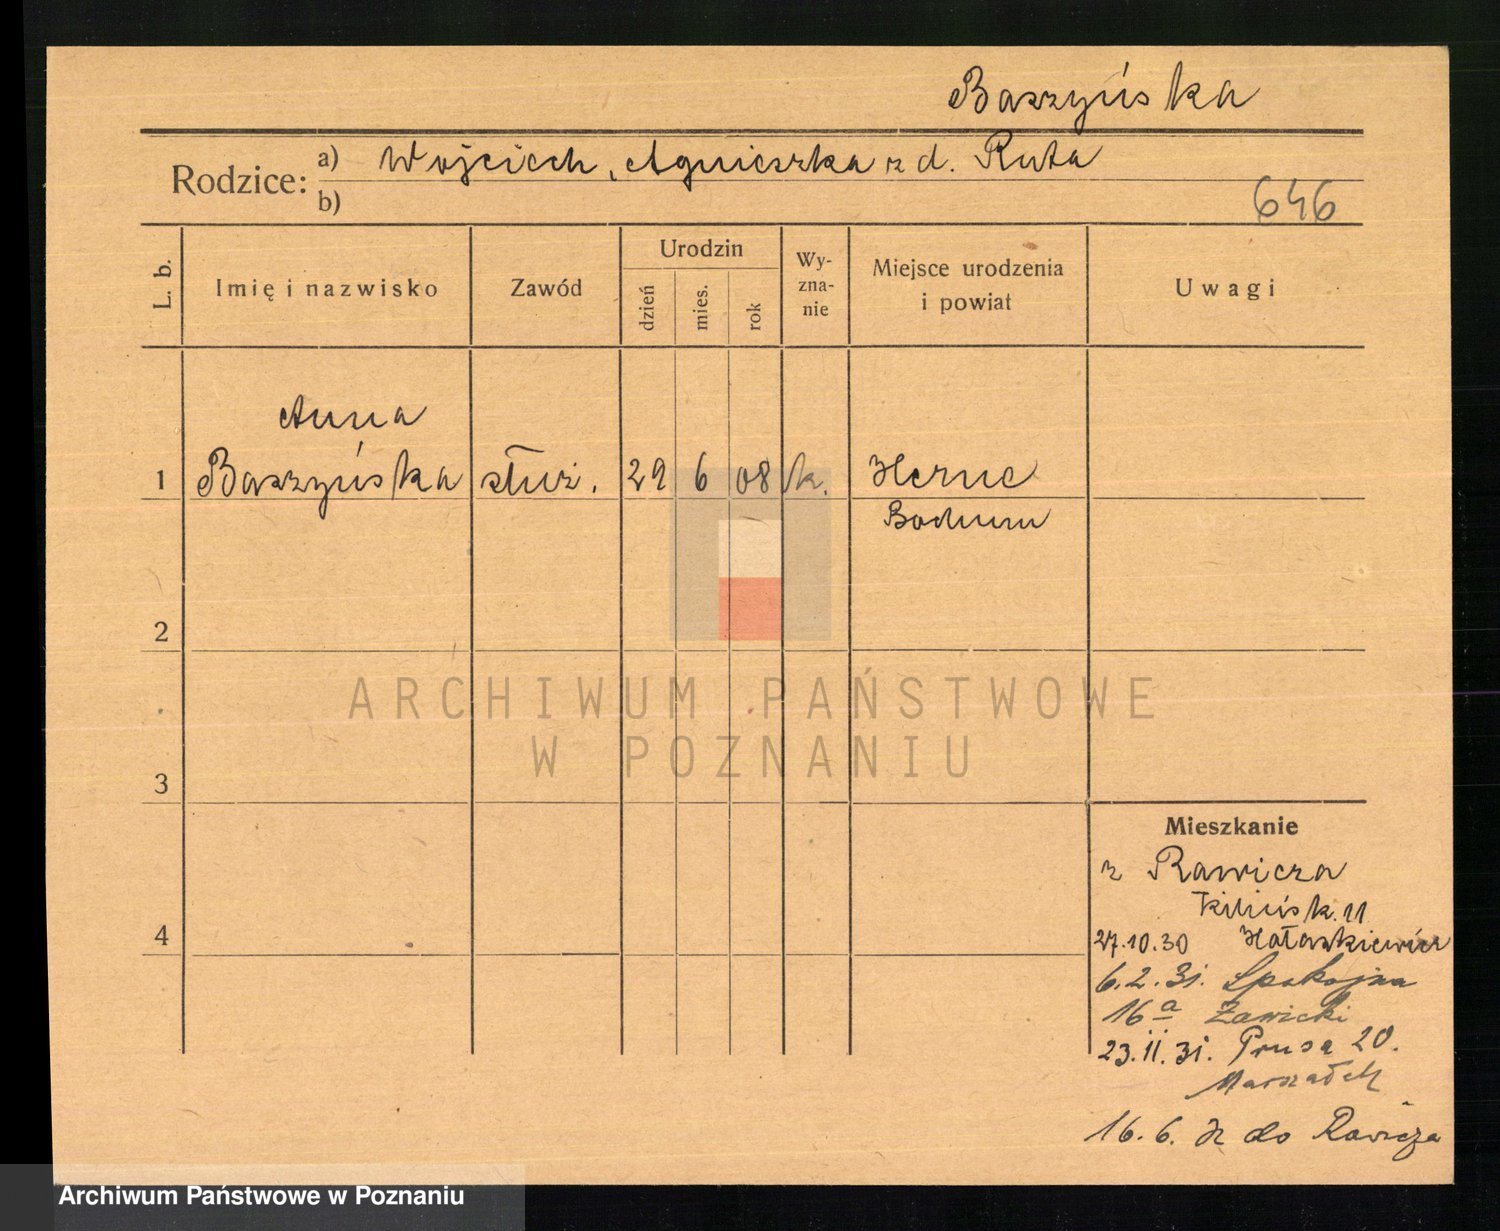 Baszyńska
Rodzice: a) Wojciech, Agnieszka z d. Ruta
b)
646
L. b.
Imię i nazwisko
Zawód
Urodzin
dzień
mies.
rok
Wy-
zna-
nie
Miejsce urodzenia
i powiat
Uwagi
Anna
1 Baszyńska służ. 29 6 08 k. Herne
Bochum
2
3
4
Mieszkanie
z Rawicza
Kilińsk. 11
27.10.30 Hałaszkiewicz
6.2.31. Spokojna
16a Zawicki
23.II.31. Prusa 20.
Marszałek
16.6. do Rawicza
ARCHIWUM PAŃSTWOWE
W POZNANIU
Archiwum Państwowe w Poznaniu